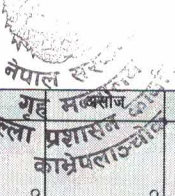 नेपाल सरकार
गृह मन्त्रालय
असोज
जिल्ला प्रशासन कार्या
काभ्रेपलाञ्चोक